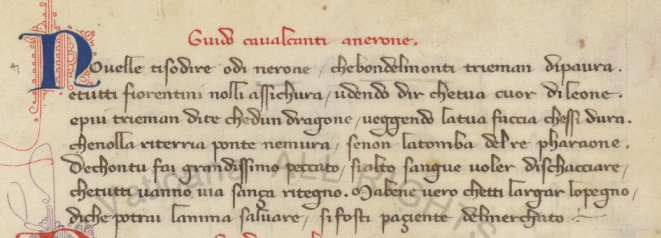 Guido cavalcanti anerone.
Nouelle tisodire odi nerone / chebondelmonti trieman dipaura.
etutti fiorentini nolli assichura / udendo dir chetua cuor dileone.
epiu trieman dite chedun dragone / ueggendo latua faccia chessi dura.
chenolla riterria ponte nemura / senon latomba delre pharaone.
Dechontu fai grandissimo peccato / sialto sangue uoler dischacciare /
chetutti uanno uia sança ritegno. Mabene uero chetti largar lopegno /
diche potrai lanima saluare / sifosti paziente delmerchato